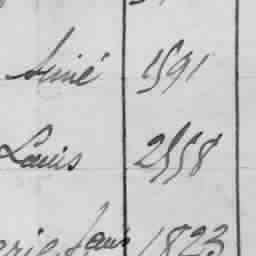 Aimé 1591
Louis 2558
erie Louis 1823